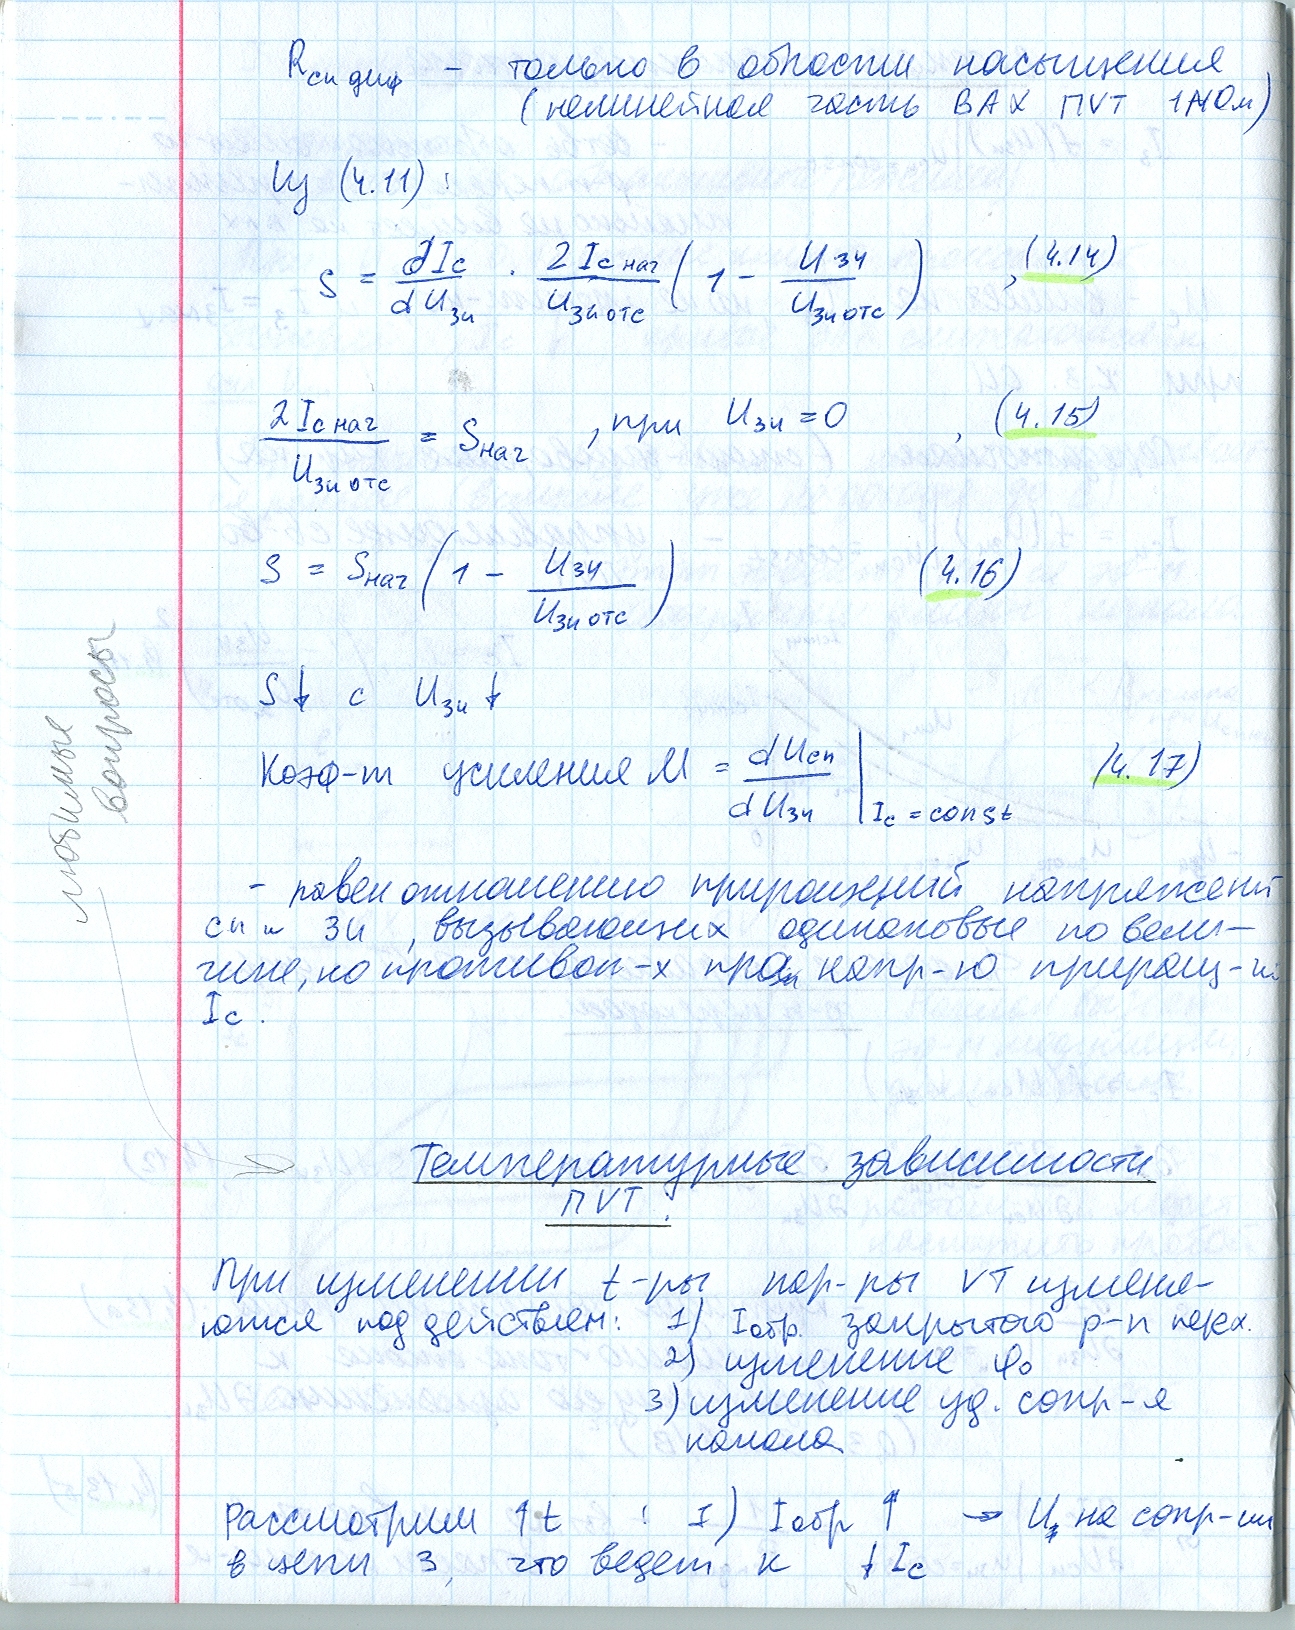 Rси диф – только в области насыщения
(нелинейная часть ВАХ ПVT 1МОм)
Из (4.11) :
S = dIc/dUзи · 2Ic нач/Uзи отс (1 – Uзи/Uзи отс) , (4.14)
2Ic нач/Uзи отс = Sнач , при Uзи = 0 , (4.15)
S = Sнач (1 – Uзи/Uзи отс) (4.16)
S↓ с Uзи ↓
любимые
вопросы
Коэф-т усиления M = dUси/dUзи | Ic = const (4.17)
– равен отношению приращений напряжений
си и зи , вызывающих одинаковые по вели-
чине, но противоп-х по напр-ю приращ-й
Ic .
Температурные зависимости
ПVT :
При изменении t-ры пар-ры VT изменя-
ются под действием: 1) Iобр. закрытого p-n перех.
2) изменение φ0
3) изменение уд. сопр-я
канала
Рассмотрим ↑t : I) Iобр ↑ → Uз на сопр-ии
в цепи З, что ведет к ↓Ic